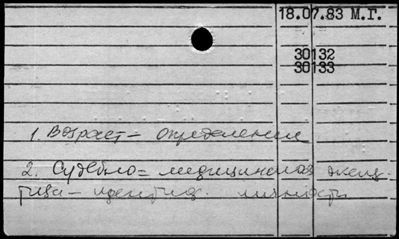 18.07.83 М.Г.
30132
30133
1. Возраст – определение
2. Судебно = медицинская экспер-
тиза – идентиф. личности